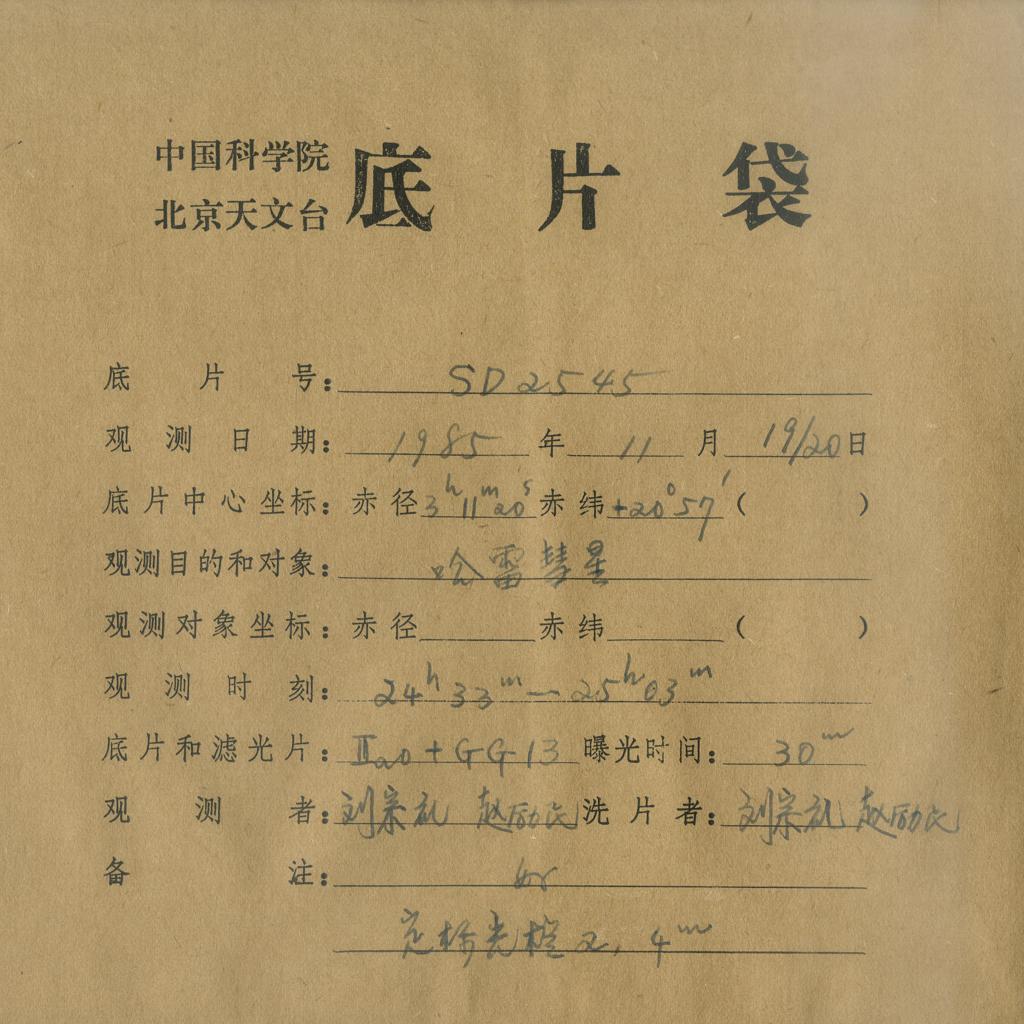 中国科学院
北京天文台 底片袋
底片号：SD2545
观测日期：1985年11月19/20日
底片中心坐标：赤径3ʰ11ᵐ20ˢ赤纬+20°57′（ ）
观测目的和对象：哈雷彗星
观测对象坐标：赤径 赤纬 （ ）
观测时刻：24ʰ33ᵐ—25ʰ03ᵐ
底片和滤光片：Ⅱao+GG13 曝光时间：30ᵐ
观测者：刘宗礼 赵励民 洗片者：刘宗礼 赵励民
备注：好
定标光楔 2, 4ᵐ